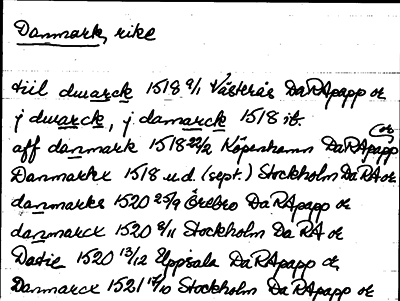 Danmark, rike
till dwarck 1518 9/1 Västerås DaRApapp or
j dwarck, j damarck 1518 ib.
aff danmark 1518 22/2 Köpenhamn DaRApapp or
Danmarkx 1518 u.d. (sept.) Stockholm DaRA or
danmarks 1520 25/9 Örebro DaRApapp or
danmarck 1520 8/11 Stockholm DaRA or
Dacie 1520 13/12 Uppsala DaRApapp or
Danmarck 1521 17/10 Stockholm DaRApapp or